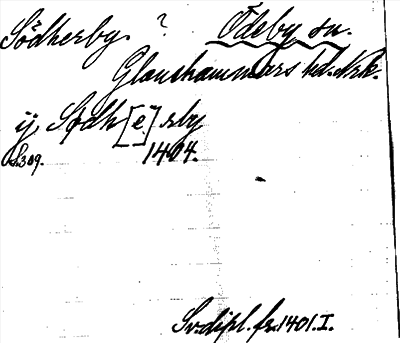 Södherby. ? Ödeby sn.
Glanshammars hd. Nrk.
ij Södh[e]rby
S. 309. 1404.
Sv. dipl. fr. 1401. I.